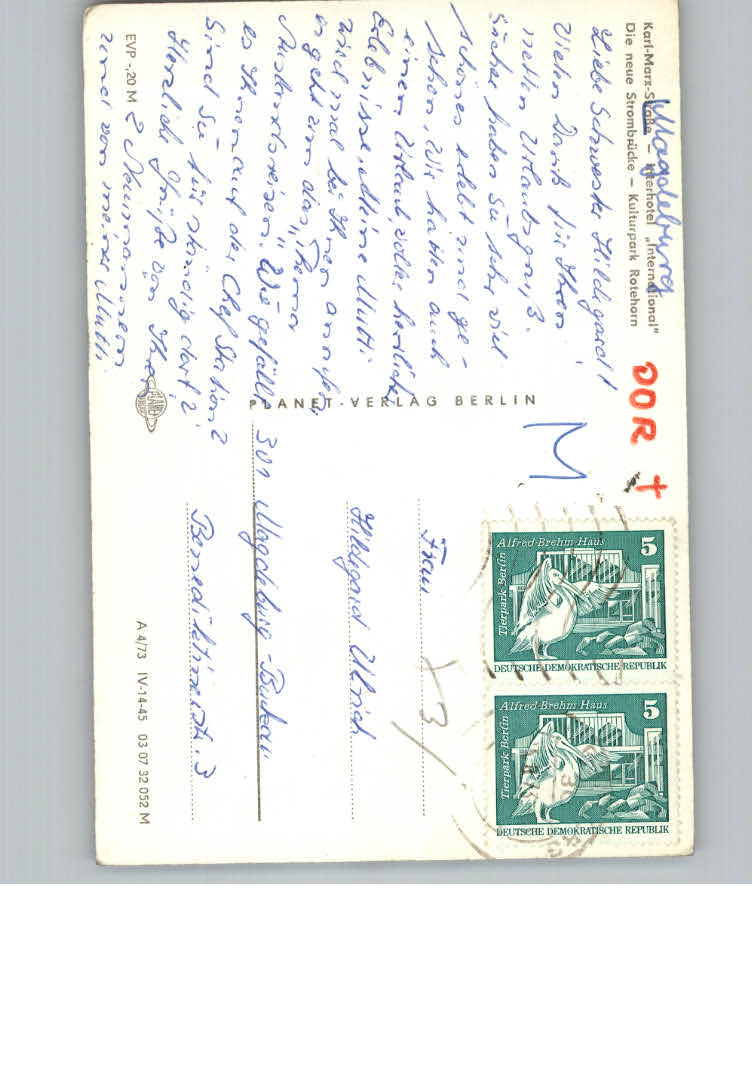 Magdeburg
Karl-Marx-Straße – Interhotel „International"
Die neue Strombrücke – Kulturpark Rotehorn
DDR +
Liebe Schwester Hildegard!
Vielen Dank für Ihren
netten Urlaubsgruß.
Sicher haben Sie sehr viel
schönes erlebt und ge-
sehen. Wir hatten auch
einen Urlaub voller herrlicher
Erlebnisse. Meine Mutti
wird mal bei Ihnen anrufen,
es geht um das Thema
„Auslandsreisen". Wie gefällt
es Ihnen auf der Chef Station?
Sind Sie für ständig dort?
Herzliche Grüße von Ihrer
und von meiner Mutti
EVP -,20 M
PLANET-VERLAG BERLIN
PLANET
M
Frau
Hildegard Ulrich
301 Magdeburg-Buckau
Benediktinerstr. 3
A 4/73 IV-14-45 03 07 32 052 M
Alfred-Brehm-Haus
5
Tierpark Berlin
DEUTSCHE DEMOKRATISCHE REPUBLIK
Alfred-Brehm-Haus
5
Tierpark Berlin
DEUTSCHE DEMOKRATISCHE REPUBLIK